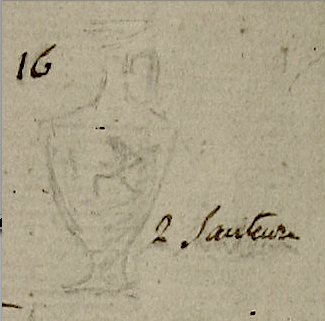 16
2 Sauteurs